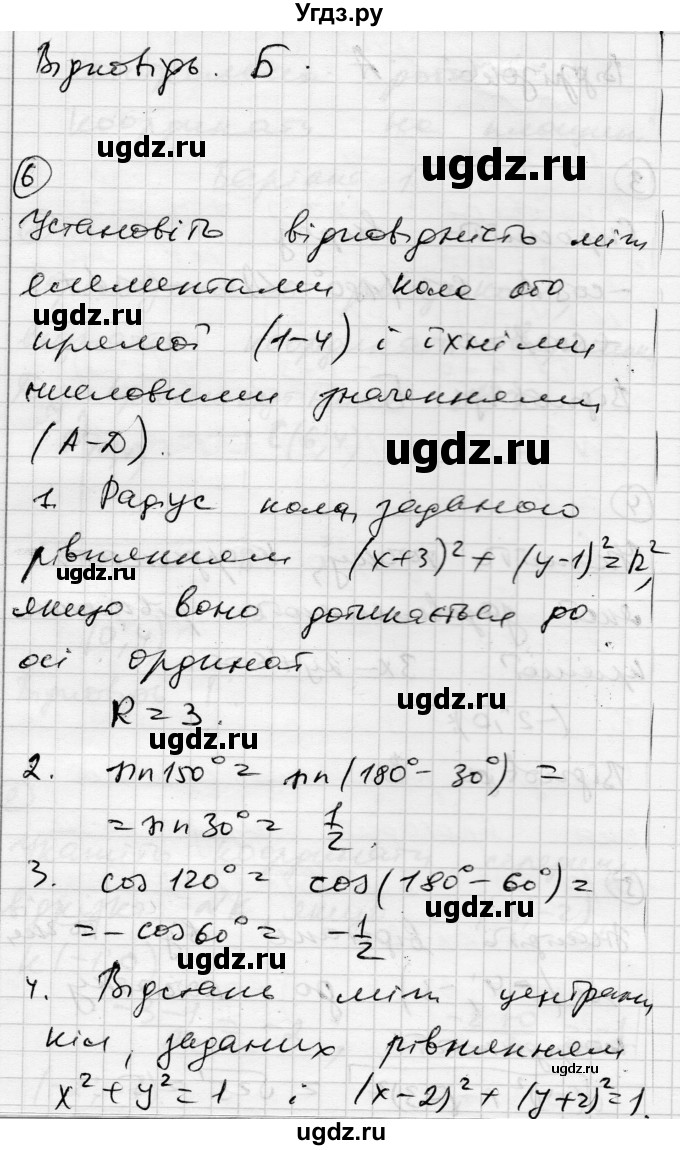 Угдз.ру
Відповідь. Б.
ugdz.ru
ugdz.ru
6
Установіть відповідність між
елементами кола або
ugdz.ru
прямої (1-4) і їхніми
числовими значеннями
(А-Д).
ugdz.ru
1. Радіус кола, заданого
рівнянням (x+3)² + (y-1)² = R²,
ugdz.ru
якщо воно дотикається до
осі ординат
ugdz.ru
R = 3.
ugdz.ru
2. sin 150° = sin(180° - 30°) =
= sin 30° = 1/2.
3. cos 120° = cos(180° - 60°) =
ugdz.ru
= - cos 60° = - 1/2
ugdz.ru
4. Відстань між центрами
кіл, заданих рівнянням
ugdz.ru
x² + y² = 1 і (x-2)² + (y+2)² = 1.
ugdz.ru